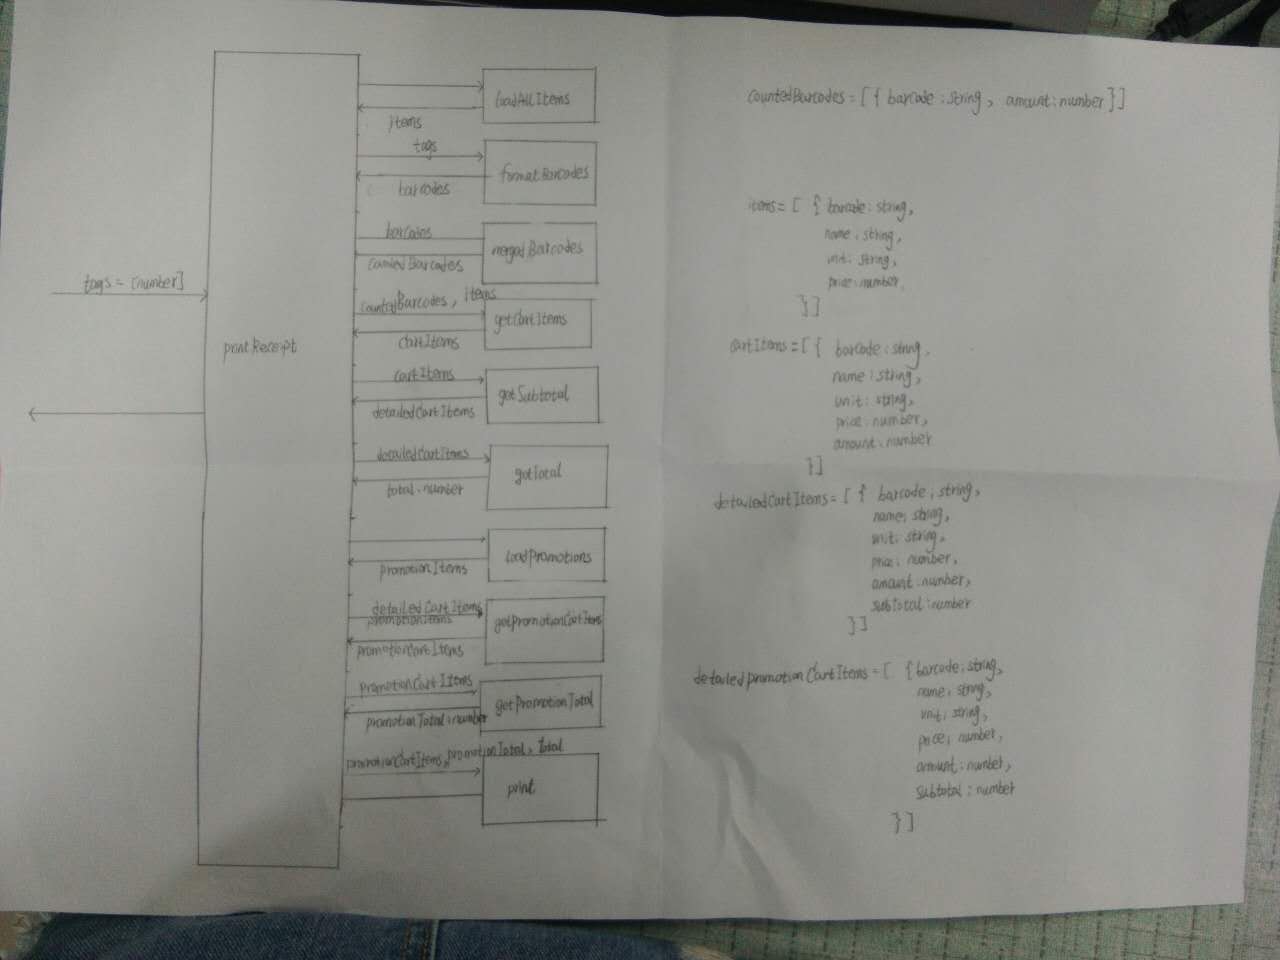 loadAllItems
items
tags
formatBarcodes
barcodes
barcodes
mergedBarcodes
countedBarcodes
tags = [number]
countedBarcodes, items
getCartItems
cartItems
printReceipt
cartItems
getSubtotal
detailedCartItems
detailedCartItems
getTotal
total:number
loadPromotions
promotionItems
detailedCartItems
promotionItems
getPromotionCartItems
promotionCartItems
promotionCartItems
getPromotionTotal
promotionTotal:number
promotionCartItems, promotionTotal, total
print
countedBarcodes = [ { barcode : string, amount: number } ]
items = [ { barcode: string,
name: string,
unit: string,
price: number,
} ]
cartItems = [ { barcode: string,
name: string,
unit: string,
price: number,
amount: number
} ]
detailedCartItems = [ { barcode: string,
name: string,
unit: string,
price: number,
amount: number,
subtotal: number
} ]
detailedpromotionCartItems = [ { barcode: string,
name: string,
unit: string,
price: number,
amount: number,
subtotal: number
} ]